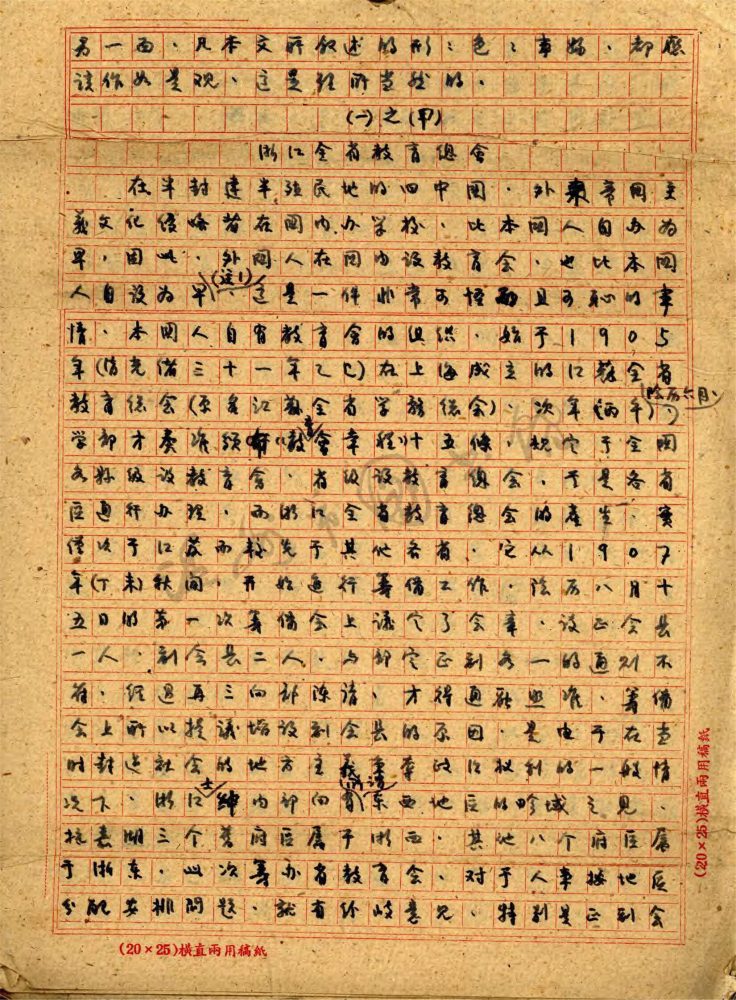 另一面,凡本文所叙述的形:色:事物,都应
该作如是观,这是经所当然的。
(一)之(甲)
浙江全省教育总会
在半封建半殖民地的旧中国,外来帝国主
义文化侵略者在国内办学校,比本国人自办为
早,因此,外国人在国内设教育会,也比本国
人自设为早,(这)这是一件非常可悟而且可耻的事
情。本国人自有教育会的组织,始于1905
年(清光绪三十一年乙巳)在上海成立的江苏全省
教育总会(原名江苏全省学务总会)。次年(丙午)(阴历六月,)
学部才奏准颁布“教育会章程”十五条,规定于全国
各县级设教育会,省级设教育总会,于是各省
区通行办理。而浙江全省教育总会的产生,实
仅次于江苏而较先于其他各省。它从1907
年(丁未)秋间,开始进行筹备工作,阴历八月十
五日的第一次筹备会上议定了会章,设正会长
一人,副会长二人,与部定正副各一的通则不
符,经过再三向部陈请,才得通融照准。筹备
会上所以提议增设副会长的原因,是由于在当
时封建社会的地方主义事业政口权利的一般情
况下,浙江士绅内部向有所谓东西地区的畛域之见。
杭嘉湖三个旧府区属于浙西,其他八个府区属
于浙东。此次筹办省教育会,对于人事按地区
分配安排问题,就有分歧意见,特别是正副会
(20×25)横直兩用稿紙
(20×25)横直兩用稿紙